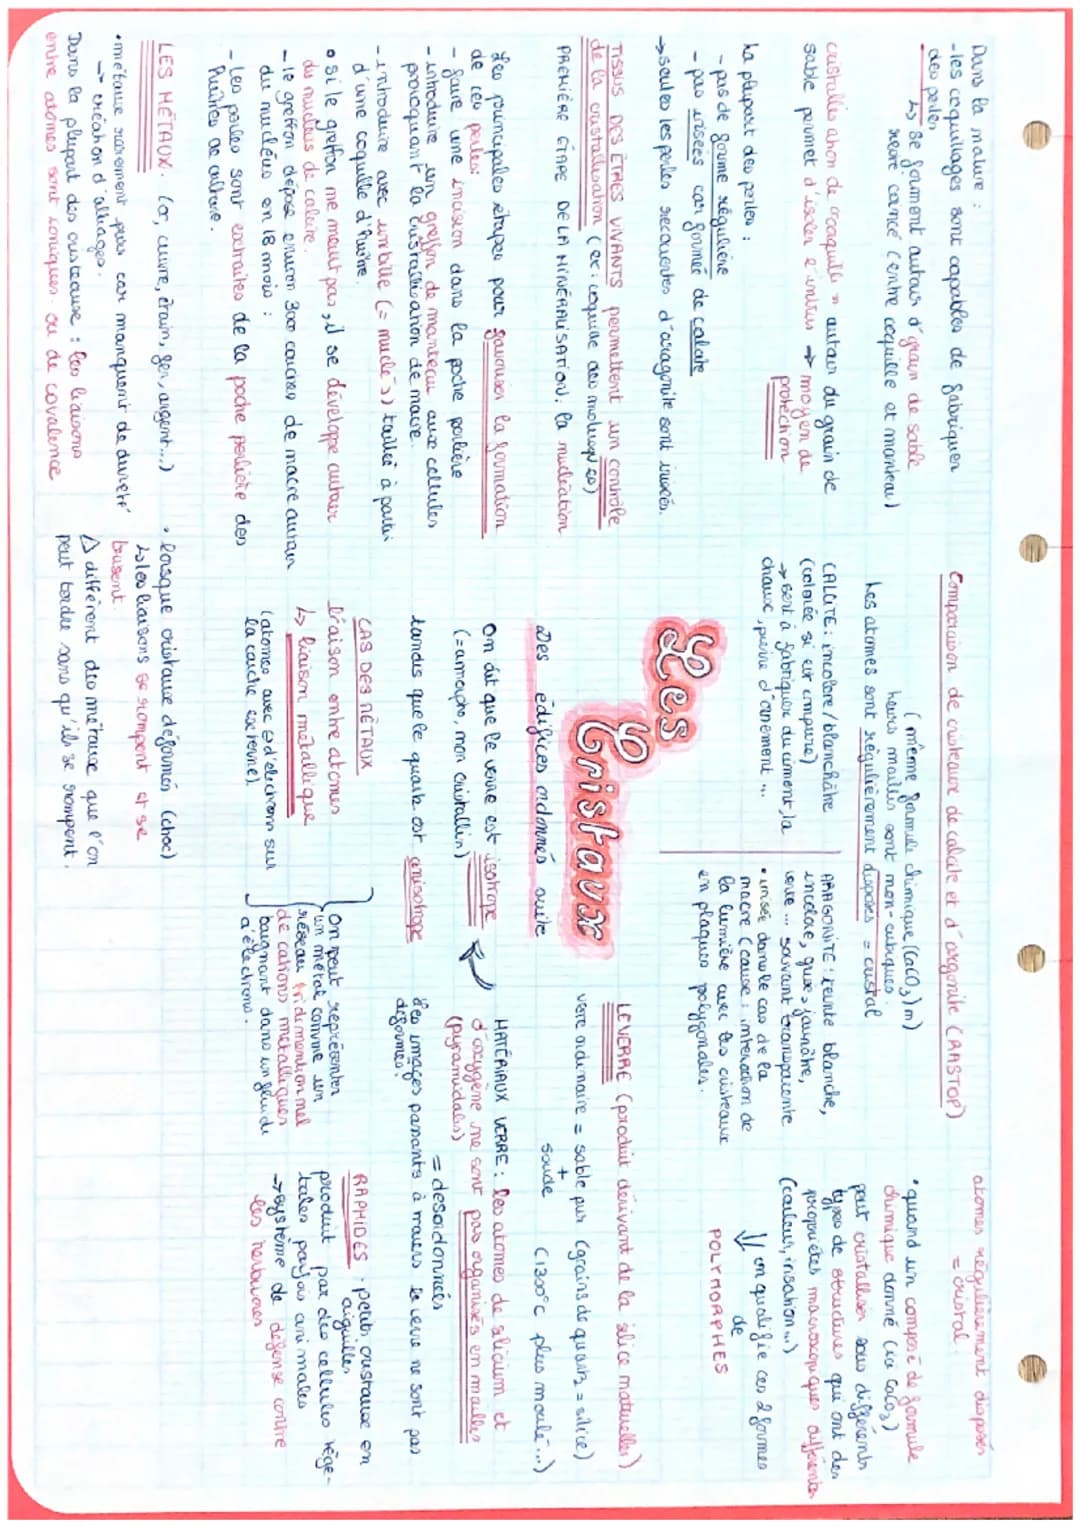 Dans la nature :
- les coquillages sont capables de fabriquer
des perles
↳ Se forment autour d'grain de sable
nacré coincé (entre coquille et manteau)
autour du grain de
sable permet d'isoler l'intrus → moyen de
protection
La plupart des perles :
- pas de forme régulière
- pas irisées car formée de calcite
→ seules les perles recouvertes d'aragonite sont irisées.
TISSUS DES ÊTRES VIVANTS permettent un contrôle
de la cristallisation (ex: coquille des mollusques)
PREMIÈRE ÉTAPE DE LA MINÉRALISATION: la nucléation
Les principales étapes pour favoriser la formation
de ces perles:
- faire une incision dans la poche perlière
- introduire un greffon de manteau aux cellules
provoquant la cristallisation de nacre.
- introduire avec un bille (= nucléus) taillé à partir
d'une coquille d'huître.
• si le greffon ne meurt pas, il se développe autour
du nucléus de calcire.
- le greffon dépose environ 3000 couches de nacre autour
du nucléus en 18 mois :
- Les perles sont extraites de la poche perlière des
huîtres de culture.
LES MÉTAUX. (or, cuivre, étain, fer, argent...)
• métaux rarement purs car manquent de dureté
→ création d'alliages.
Dans la plupart des cristaux : les liaisons
entre atomes sont ioniques ou de covalence
Comparaison de cristaux de calcite et d'argonite (RASTOP)
(même formule chimique (CaCO3)n)
leurs mailles sont non-cubiques.
Les atomes sont régulièrement disposés = cristal
CALCITE : incolore / blanchâtre
(colorée si est impure)
→ sert à fabriquer du ciment, la
chaux, pierre d'ornement ...
ARAGONITE : teinte blanche,
incolore, grise, jaunâtre,
verte ... souvent transparente
• irisée dans le cas de la
nacre (cause : interaction de
la lumière avec les cristaux
en plaques polygonales.
Les
Cristaux
Des édifices ordonnés suite
On dit que le verre est isotrope
(= amorphe, non cristallin)
tandis que le quartz est anisotrope
CAS DES MÉTAUX
liaison entre atomes
↳ liaison métallique
(atomes avec e- d'électrons sur
la couche externe)
On peut représenter
un métal comme un
réseau tridimentionnel
de cations métalliques
baignant dans un fluide
d'électrons.
• lorsque cristaux déformés (choc)
↳ les liaisons se rompent et se
brisent.
⚠ différent des métaux que l'on
peut tordre sans qu'ils se rompent.
atomes régulièrement disposés
= cristal
• quand un composé de formule
chimique donné (ici CaCO3)
peut cristalliser sous différents
types de structures qui ont des
propriétés macroscopiques différentes
(couleur, irisation...)
⇓ on qualifie ces 2 formes
de
POLYMORPHES
LE VERRE (produit dérivant de la silice naturelle)
verre ordinaire = sable pur (grains de quartz = silice)
+
soude (1300°C plus moulé...)
MATÉRIAUX VERRE : les atomes de silicium et
d'oxygène ne sont pas organisés en mailles
(pyramidales)
= désordonnés
Les images passants à travers le verre ne sont pas
déformées.
RAPHIDES : petits cristaux en
aiguilles
produit par des cellules végé-
tales
→ système de défense contre
les herbivores